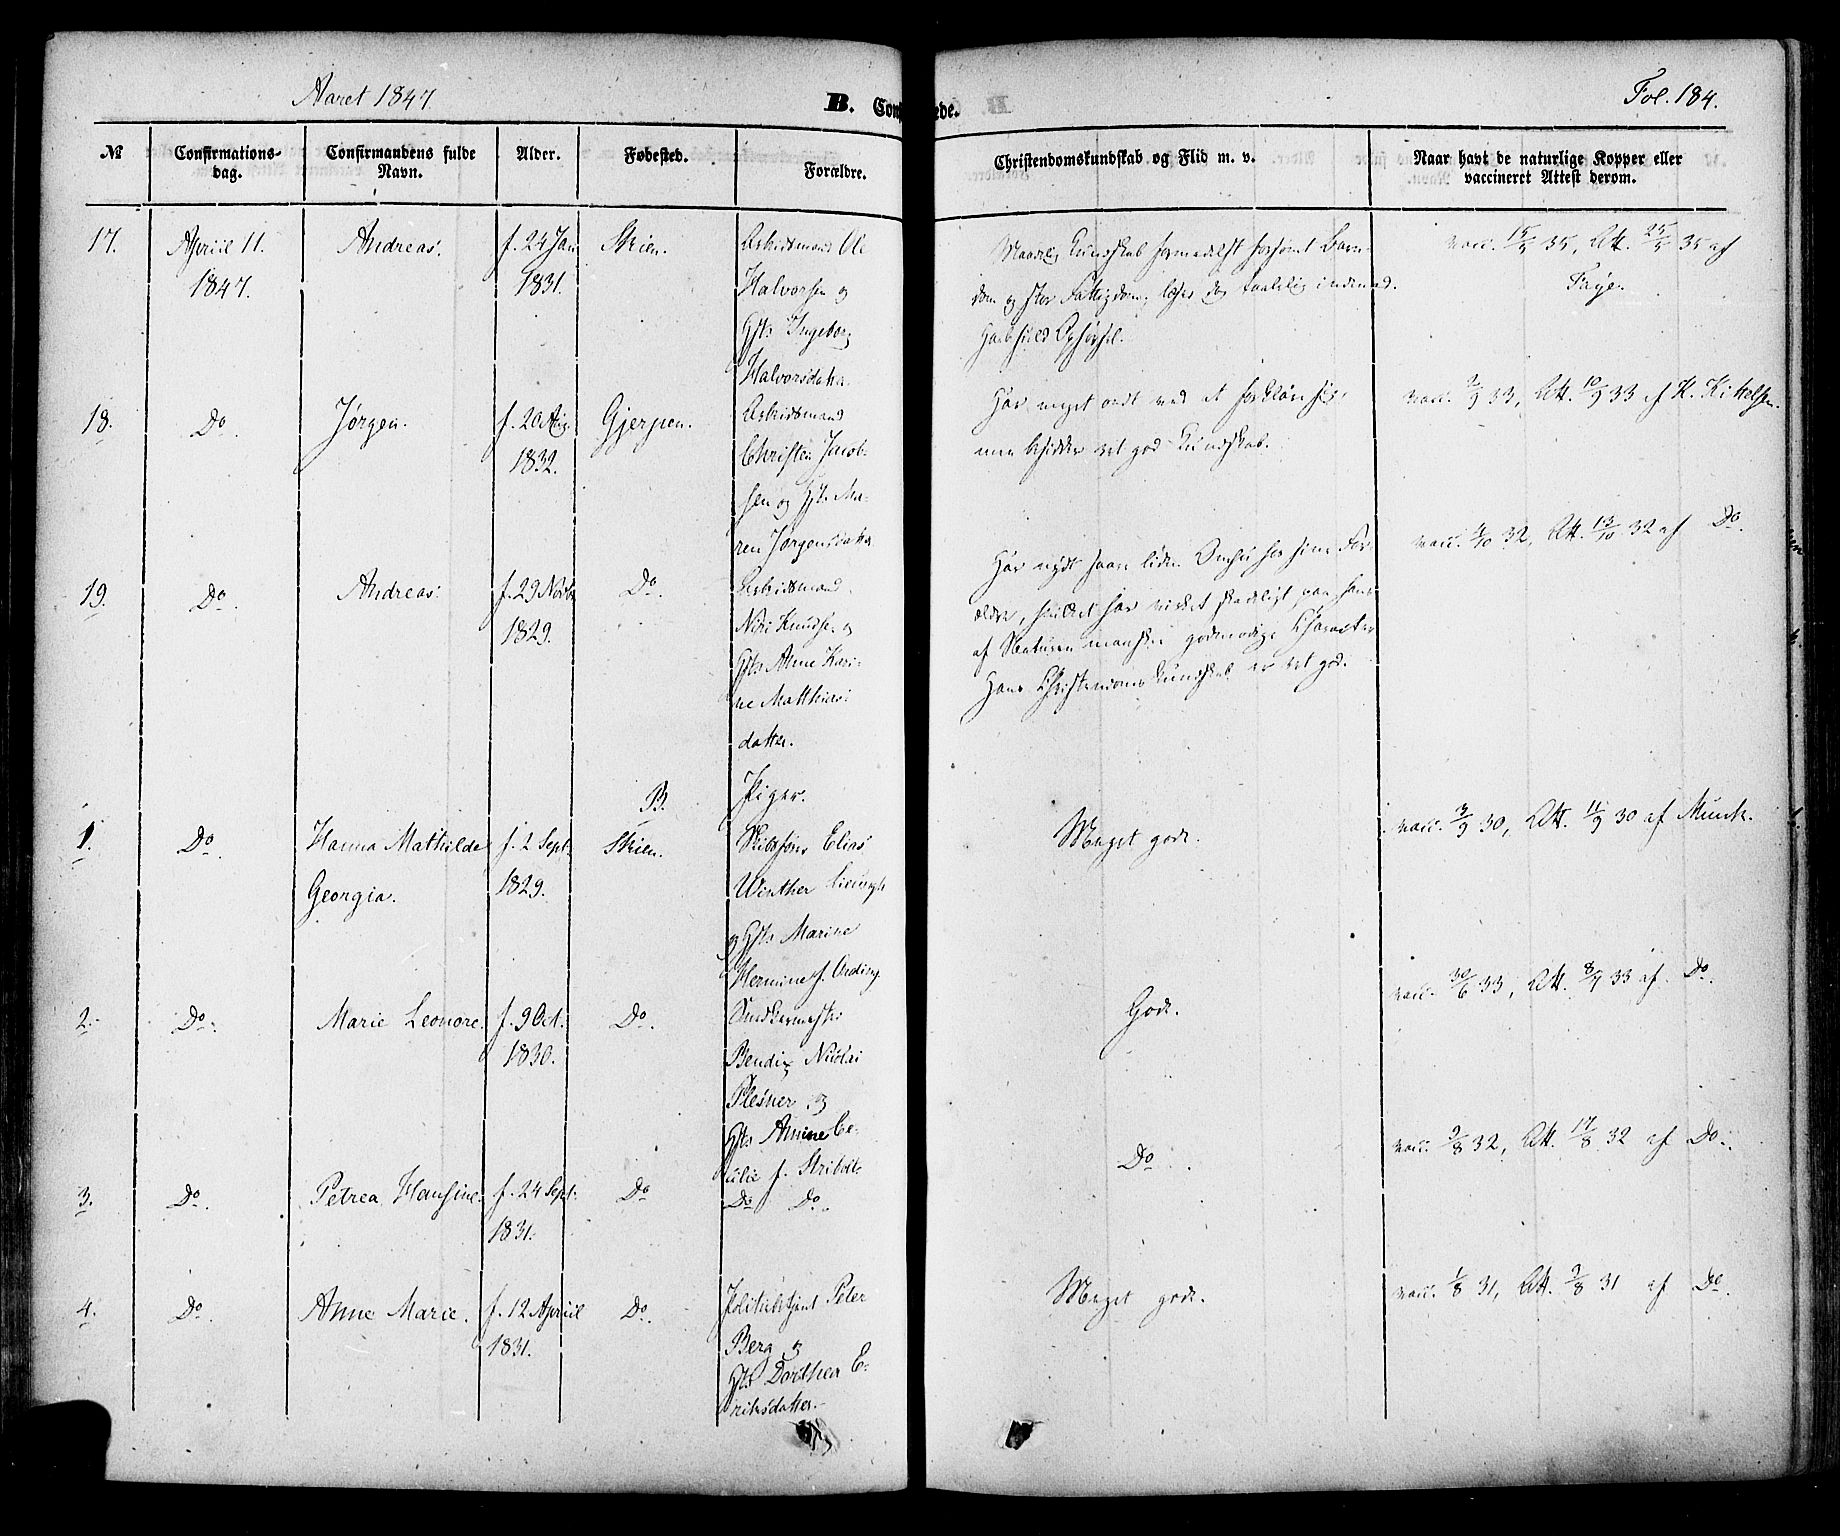 Aaret 1847
B. Conf
ede.
Fol. 184.
№
Confirmations-
dag.
Confirmandens fulde
Navn.
Alder.
Fødested.
Forældre.
Christendomskundskab og Flid m. v.
Naar havt de naturlige Kopper eller
vaccineret Attest derom.
17.
Apriil 11.
1847.
Andreas.
f. 24 Jan
1831.
Skien.
Arbeidsmand Ole
Halvorsen og
Hst. Ingeborg
Halvorsdatter.
Maadelig Kundskab formedelst forsømt Barn-
dom og stor Fattigdom; læser dog taalelig indenad.
vacc. 15/5 35, Att. 25/5 35 af
Faye.
18.
Do.
Jørgen.
f. 20 Aug.
1832.
Gjerpen.
Arbeidsmand
Christen Jacob-
sen og Hst. Ma-
ren Jørgensdatter
Har meget ondt ved at forklare sig,
men besidder ret god Kundskab.
vacc. 2/9 33, Att. 10/9 33 af H. Kittelsen.
19.
Do.
Andreas.
f. 29 Novbr
1829.
Do.
Arbeidsmand
Niri Knudsen og
Hst. Anne Kari-
ne Matthias-
datter.
Har nydt saare liden Omhu for sine For-
ældre, hvilket har virket skadeligt paa hans
af Naturen maaske godmodige Character
Hans Christendomskundskab er ret god.
vacc. 4/10 32, Att. 13/10 32 af Do.
B. Piger.
1.
Do.
Hanna Mathilde
Georgia.
f. 2 Sept.
1829.
Skien.
Skibsfører Elias
Winther
og Hst. Marine
Hermine f. Ording.
Meget godt.
vacc. 3/9 30, Att. 11/9 30 af Munk.
2.
Do.
Marie Leonore.
f. 9 Oct.
1830.
Do.
Snedkermester
Bendix Nicolai
Plesner og
Hst. Annine Ce-
cilie f. Stribolt
Godt.
vacc. 30/6 33, Att. 8/7 33 af Do.
3.
Do.
Petrea Hansine.
f. 24 Sept.
1831.
Do
Do Do.
Do.
vacc. 9/8 32, Att. 17/8 32 af Do.
4.
Do.
Anne Marie.
f. 12 Apriil
1831.
Do.
Politibetjent Peter
Berg og
Hst. Dorthea E-
riksdatter.
Meget godt.
vacc. 1/8 31, Att. 9/8 31 af Do.